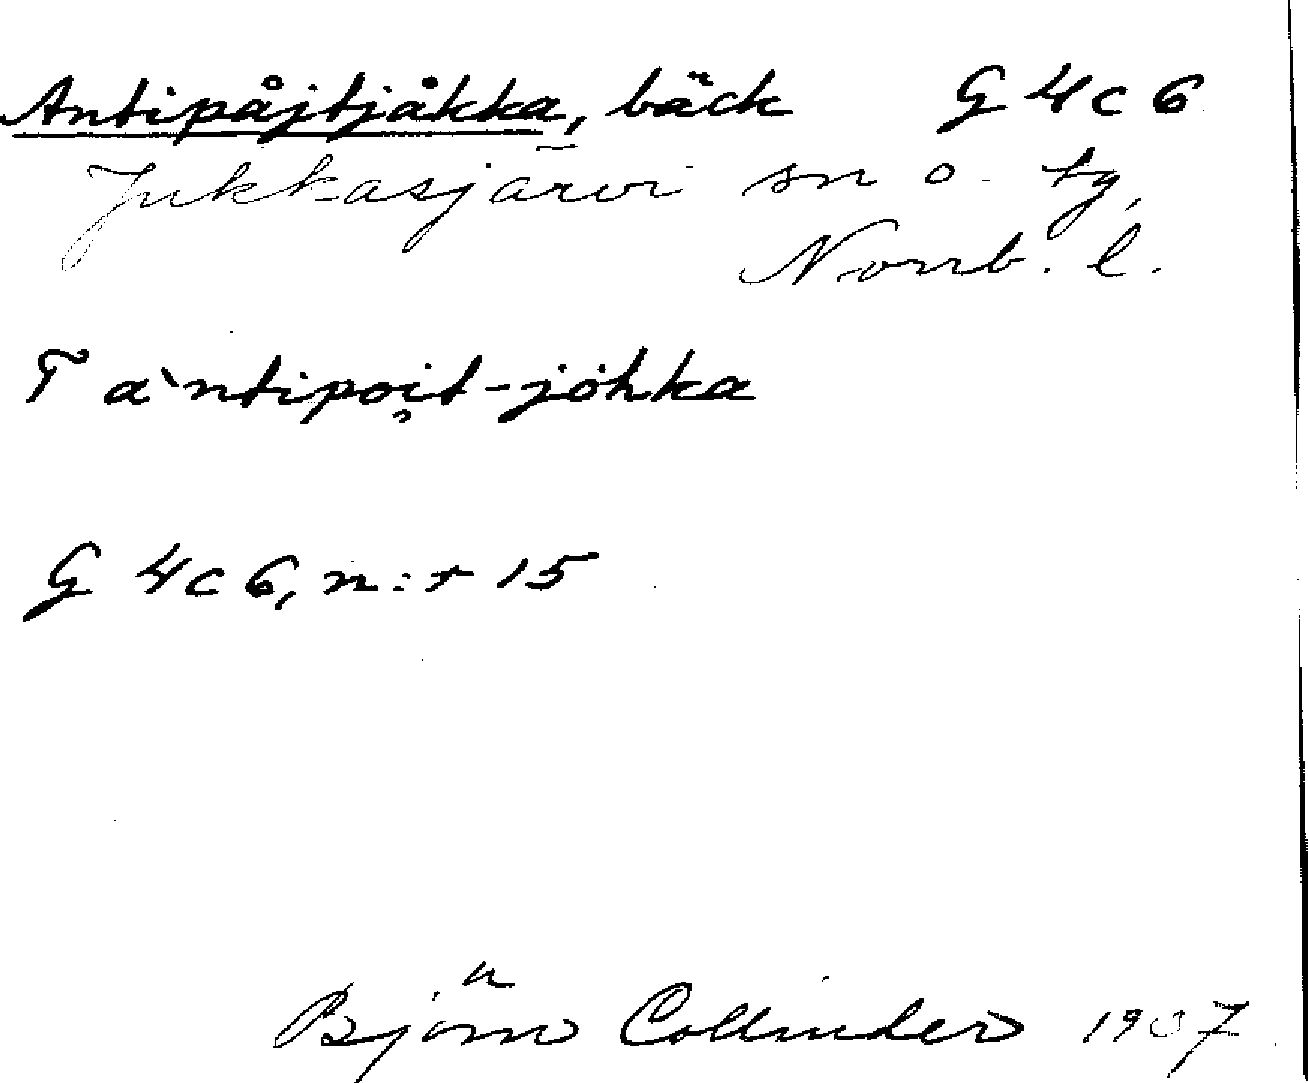 Antipåjtjåkka, bäck G 4 c 6
Jukkasjärvi sn o. tg,
Norrb. l.
T a`ntipoi̯t-johka
G 4c 6, n:r 15
Björn Collinder 1937